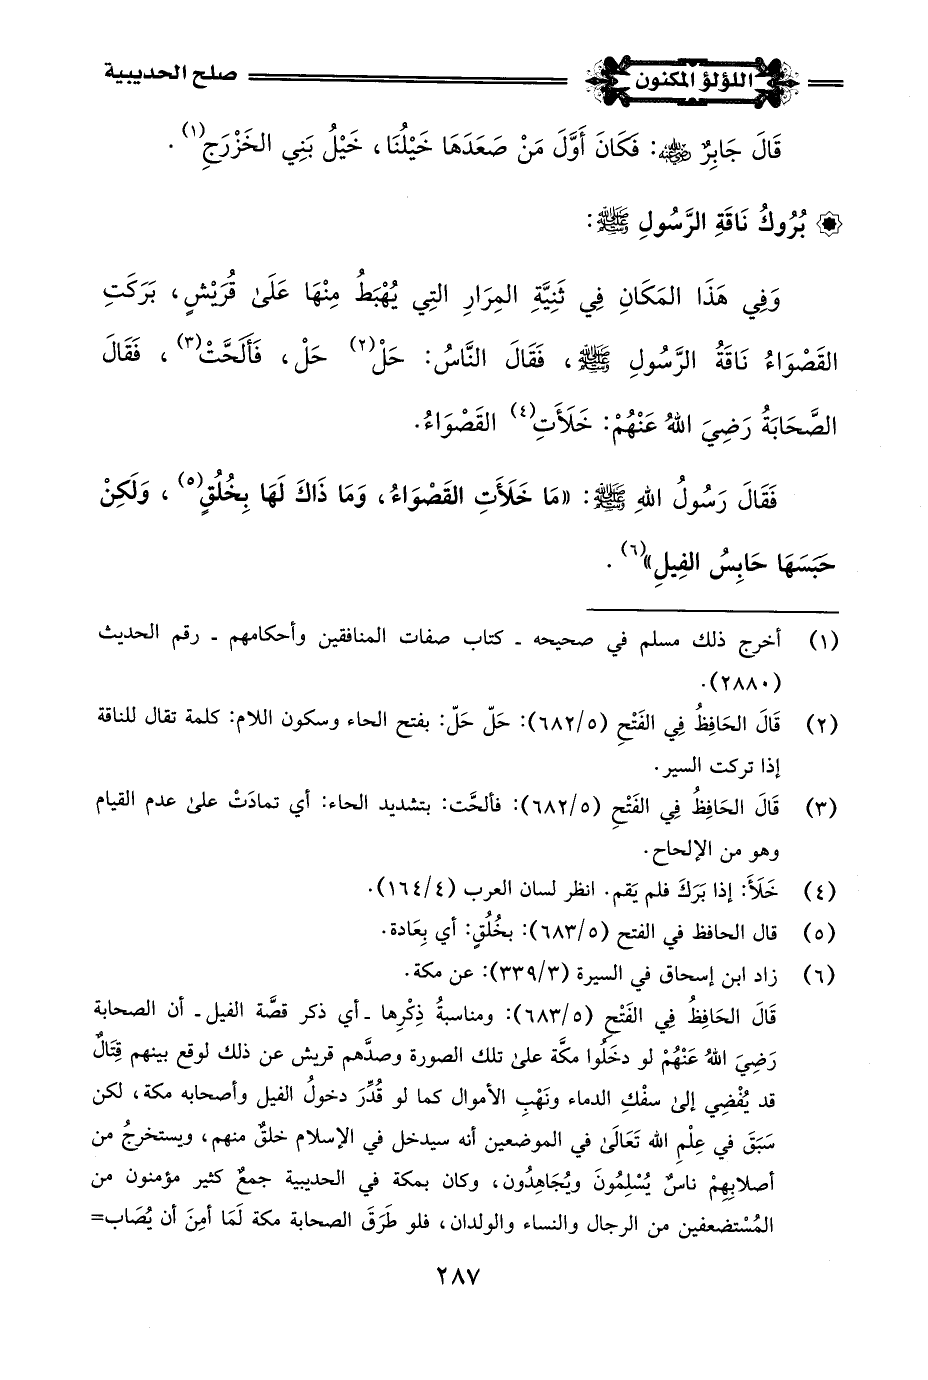 اللؤلؤ المكنون
صلح الحديبية
قَالَ جَابِرٌ رضي الله عنه: فَكَانَ أَوَّلَ مَنْ صَعَدَهَا خَيْلُنَا، خَيْلُ بَنِي الخَزْرَجِ(١).
بُرُوكُ نَاقَةِ الرَّسُولِ ﷺ:
وَفِي هَذَا المَكَانِ فِي ثَنِيَّةِ المِرَارِ التِي يُهْبَطُ مِنْهَا عَلَىٰ قُرَيْشٍ، بَرَكَتِ
القَصْوَاءُ نَاقَةُ الرَّسُولِ ﷺ، فَقَالَ النَّاسُ: حَلْ(٢) حَلْ، فَأَلَحَّتْ(٣)، فَقَالَ
الصَّحَابَةُ رَضِيَ اللهُ عَنْهُمْ: خَلَأَتِ(٤) القَصْوَاءُ.
فَقَالَ رَسُولُ اللهِ ﷺ: «مَا خَلَأَتِ القَصْوَاءُ، وَمَا ذَاكَ لَهَا بِخُلُقٍ(٥)، وَلَكِنْ
حَبَسَهَا حَابِسُ الفِيلِ»(٦).
(١) أخرج ذلك مسلم في صحيحه ـ كتاب صفات المنافقين وأحكامهم ـ رقم الحديث
(٢٨٨٠).
(٢) قَالَ الحَافِظُ فِي الفَتْحِ (٦٨٢/٥): حَلّ حَلّ: بفتح الحاء وسكون اللام: كلمة تقال للناقة
إذا تركت السير.
(٣) قَالَ الحَافِظُ فِي الفَتْحِ (٦٨٢/٥): فألحَّت: بتشديد الحاء: أي تمادَتْ علىٰ عدم القيام
وهو من الإلحاح.
(٤) خَلَأَ: إذا بَرَكَ فلم يَقم. انظر لسان العرب (١٦٤/٤).
(٥) قال الحافظ في الفتح (٦٨٣/٥): بخُلُقٍ: أي بِعَادة.
(٦) زاد ابن إسحاق في السيرة (٣٣٩/٣): عن مكة.
قَالَ الحَافِظُ فِي الفَتْحِ (٦٨٣/٥): ومناسبةُ ذِكْرِها ـ أي ذكر قصَّة الفيل ـ أن الصحابة
رَضِيَ اللهُ عَنْهُمْ لو دخَلُوا مكَّة علىٰ تلك الصورة وصدَّهم قريش عن ذلك لوقع بينهم قِتَالٌ
قد يُفْضِي إلىٰ سفْكِ الدماء ونَهْبِ الأموال كما لو قُدِّرَ دخولُ الفيل وأصحابه مكة، لكن
سَبَقَ في عِلْمِ الله تَعَالَىٰ في الموضعين أنه سيدخل في الإسلام خلقٌ منهم، ويستخرجُ من
أصلابِهِمْ ناسٌ يُسْلِمُونَ ويُجَاهِدُون، وكان بمكة في الحديبية جمعٌ كثير مؤمنون من
المُسْتضعفين من الرجال والنساء والولدان، فلو طَرَقَ الصحابة مكة لَمَا أمِنَ أن يُصَاب=
٢٨٧